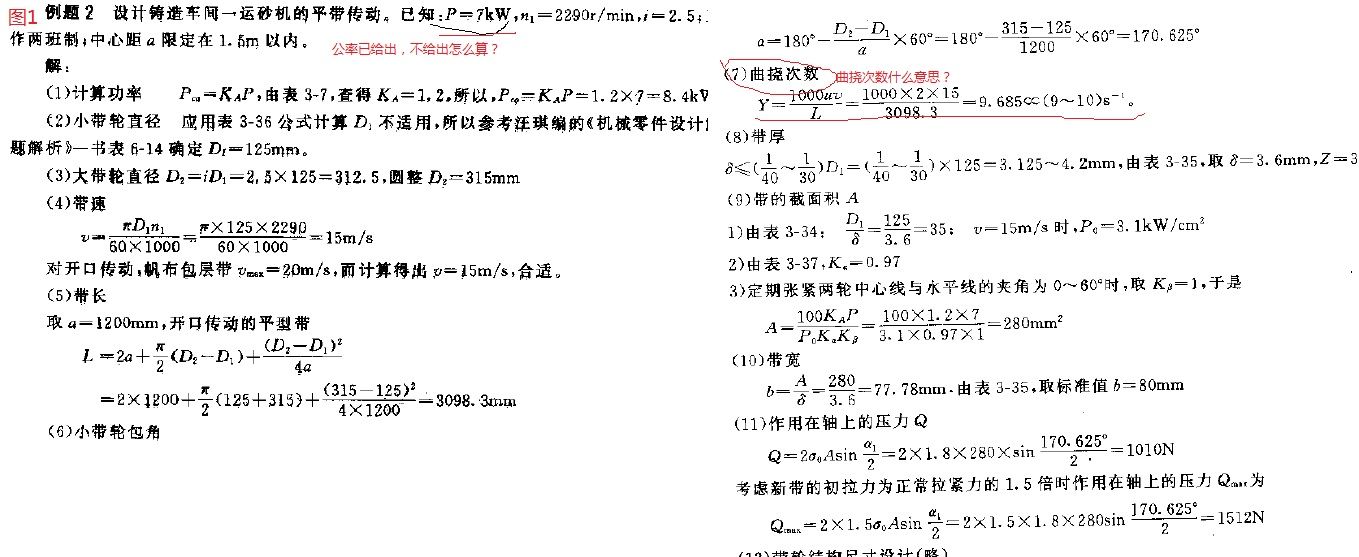 图1 例题2 设计铸造车间一运砂机的平带传动。已知:P=7kW,n₁=2290r/min,i=2.5;
作两班制;中心距a限定在1.5m以内。
公率已给出，不给出怎么算？
解:
(1)计算功率 Pca=KAP,由表3-7,查得KA=1.2,所以,Pca=KAP=1.2×7=8.4kW
(2)小带轮直径 应用表3-36公式计算D₁不适用,所以参考汪琪编的《机械零件设计
题解析》一书表6-14确定D₁=125mm。
(3)大带轮直径D₂=iD₁=2.5×125=312.5,圆整D₂=315mm
(4)带速
v=πD₁n₁/60×1000=π×125×2290/60×1000=15m/s
对开口传动,帆布包层带vmax=20m/s,而计算得出v=15m/s,合适。
(5)带长
取a=1200mm,开口传动的平型带
L=2a+π/2(D₂-D₁)+(D₂-D₁)²/4a
=2×1200+π/2(125+315)+(315-125)²/4×1200=3098.3mm
(6)小带轮包角
a=180°-D₂-D₁/a×60°=180°-315-125/1200×60°=170.625°
(7)曲挠次数 曲挠次数什么意思？
Y=1000uv/L=1000×2×15/3098.3=9.685∝(9~10)s⁻¹。
(8)带厚
δ≤(1/40~1/30)D₁=(1/40~1/30)×125=3.125~4.2mm,由表3-35,取δ=3.6mm,Z=3
(9)带的截面积A
1)由表3-34: D₁/δ=125/3.6=35; v=15m/s时,P₀=3.1kW/cm²
2)由表3-37,Kα=0.97
3)定期张紧两轮中心线与水平线的夹角为0~60°时,取Kβ=1,于是
A=100KAP/P₀KαKβ=100×1.2×7/3.1×0.97×1=280mm²
(10)带宽
b=A/δ=280/3.6=77.78mm.由表3-35,取标准值b=80mm
(11)作用在轴上的压力Q
Q=2σ₀Asin α₁/2=2×1.8×280×sin 170.625°/2=1010N
考虑新带的初拉力为正常拉紧力的1.5倍时作用在轴上的压力Qmax为
Qmax=2×1.5σ₀Asin α₁/2=2×1.5×1.8×280sin 170.625°/2=1512N
(12)带轮结构尺寸设计(略)